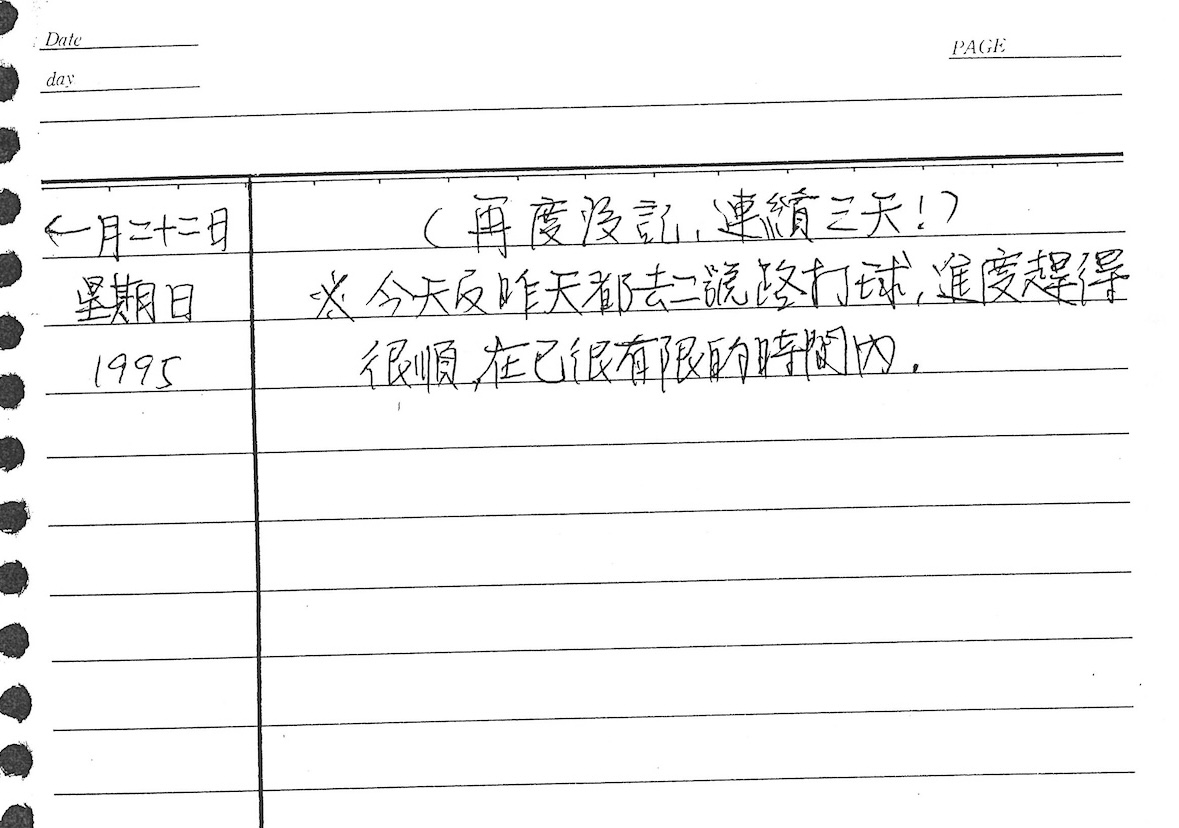 Date
PAGE
day
←一月二十二日
(再度沒記,連續三天!)
星期日
※今天及昨天都去二號路打球,進度趕得
1995
很順,在已很有限的時間內.